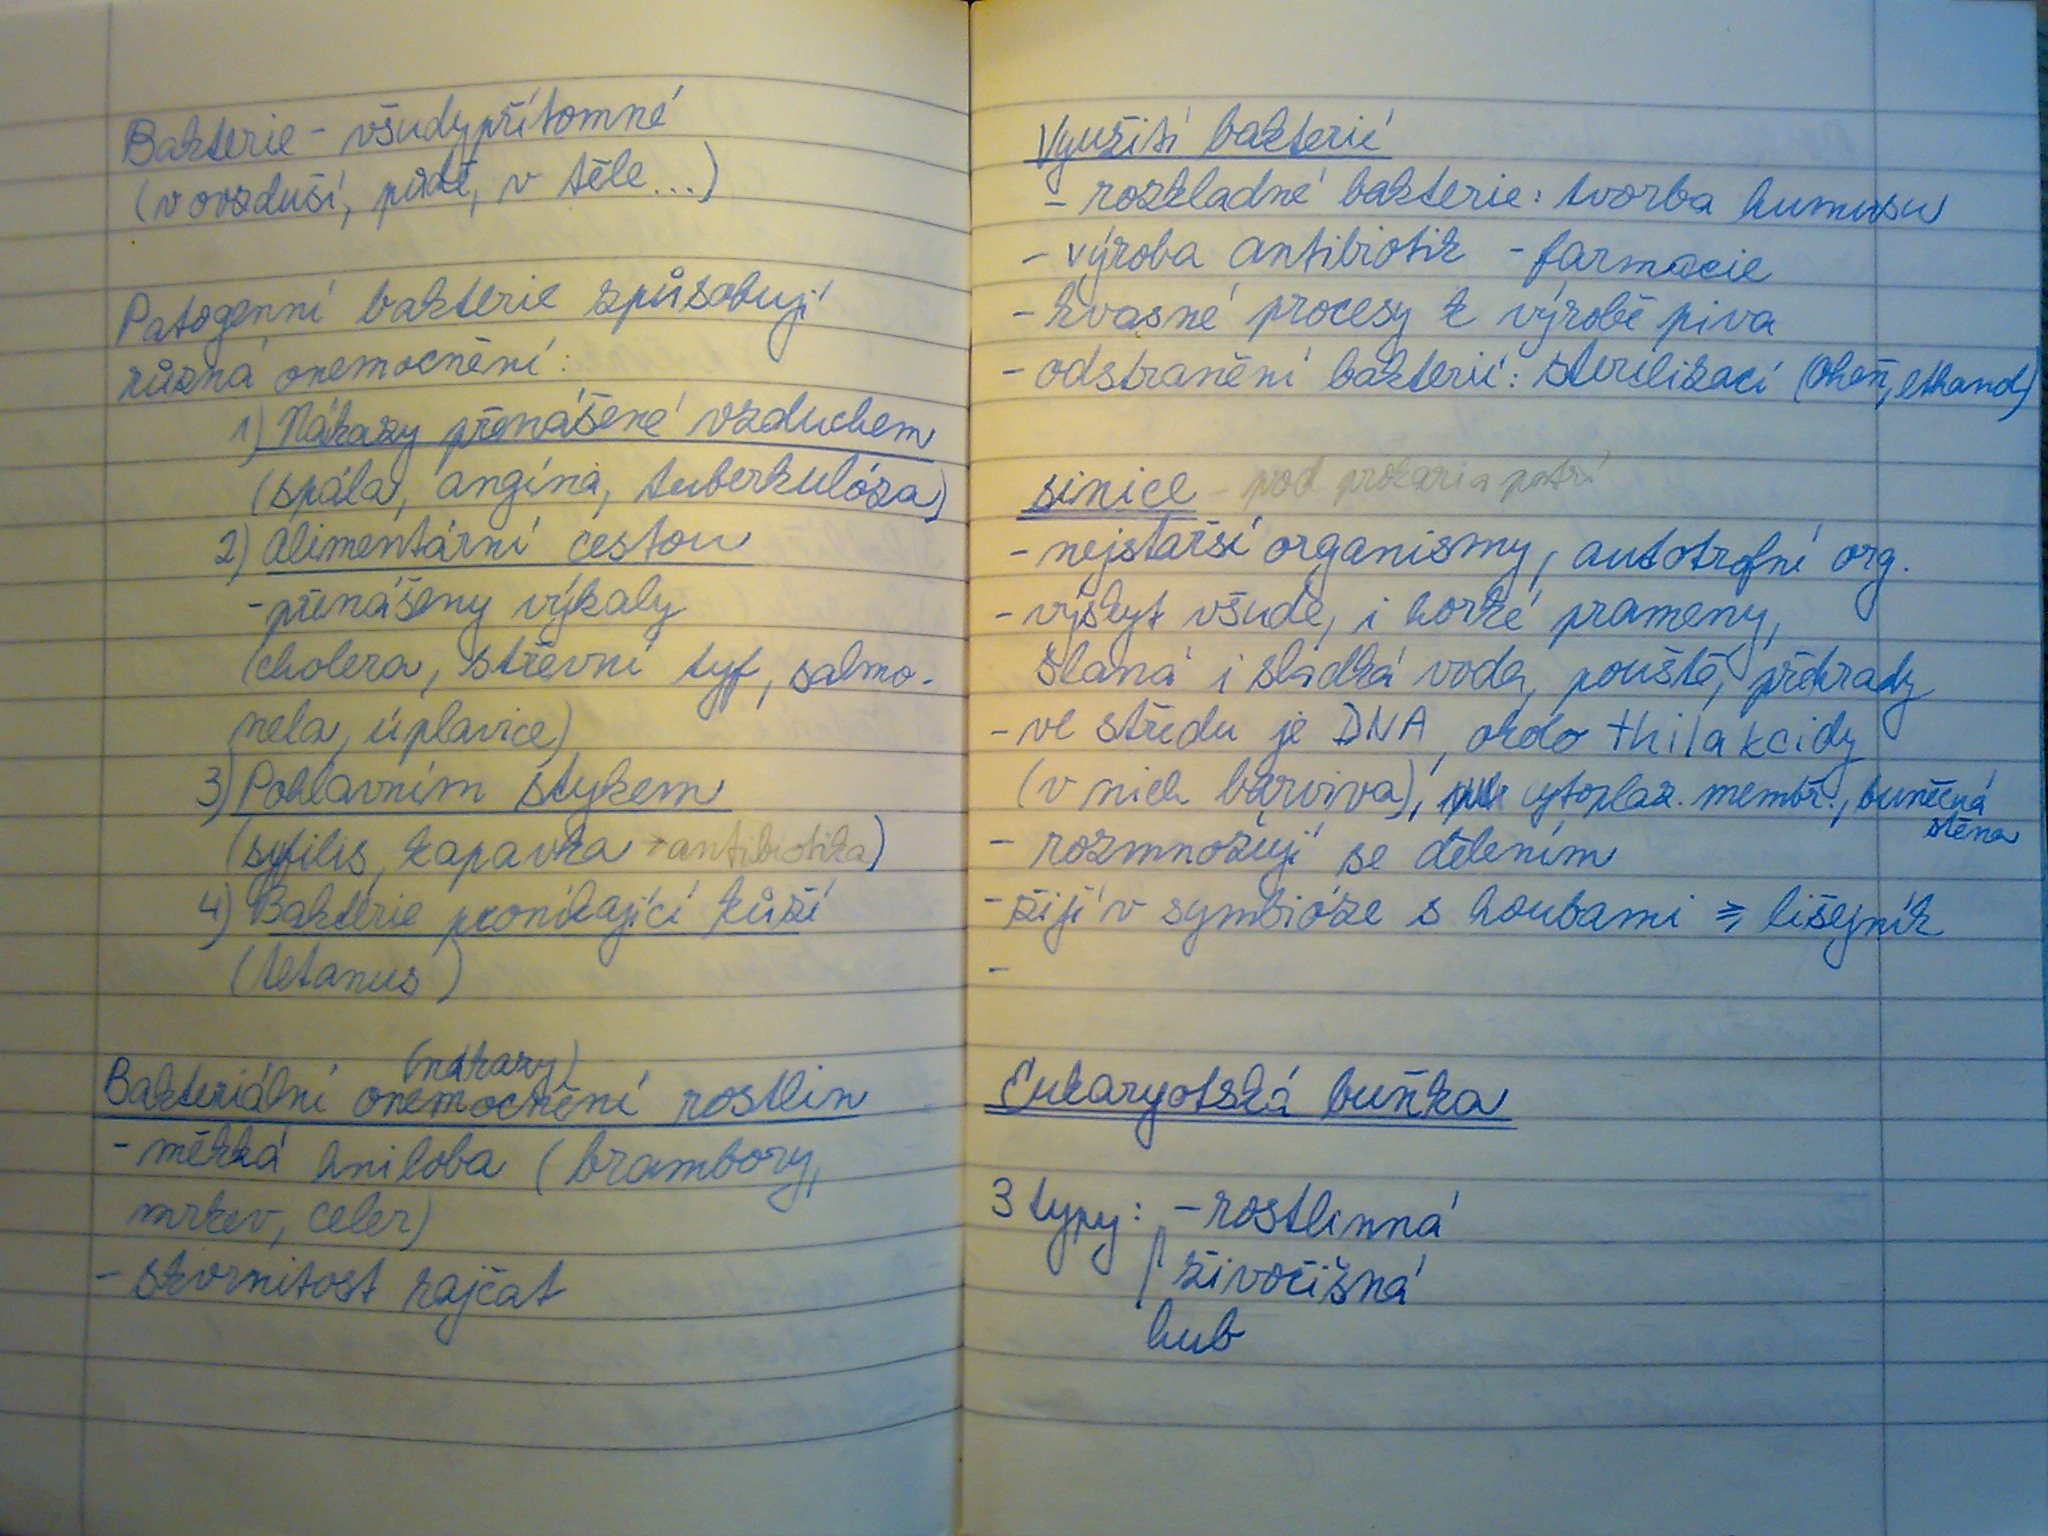 Bakterie - všudypřítomné
(v ovzduší, půdě, v těle...)
Patogenní bakterie způsobují
různá onemocnění:
1) Nákazy přenášené vzduchem
(spála, angína, tuberkulóza)
2) Alimentární cestou
- přenášeny výkaly
(cholera, střevní tyf, salmo-
nela, úplavice)
3) Pohlavním stykem
(syfilis, kapavka → antibiotika)
4) Bakterie pronikající kůží
(tetanus)
(nákazy)
Bakteriální onemocnění rostlin
- měkká hniloba (brambory,
mrkev, celer)
- skvrnitost rajčat
Využití bakterií
- rozkladné bakterie: tvorba humusu
- výroba antibiotik - farmacie
- kvasné procesy k výrobě piva
- odstranění bakterií: sterilizací (oheň, ethanol)
sinice - pod prokaria patří
- nejstarší organismy, autotrofní org.
- výskyt všude, i horké prameny,
slaná i sladká voda, pouště, přehrady
- ve středu je DNA, okolo thilakoidy
(v nich barviva), cytoplaz. membr., buněčná
stěna
- rozmnožují se dělením
- žijí v symbióze s houbami ⇒ lišejník
-
Eukaryotská buňka
3 typy: - rostlinná
živočišná
hub